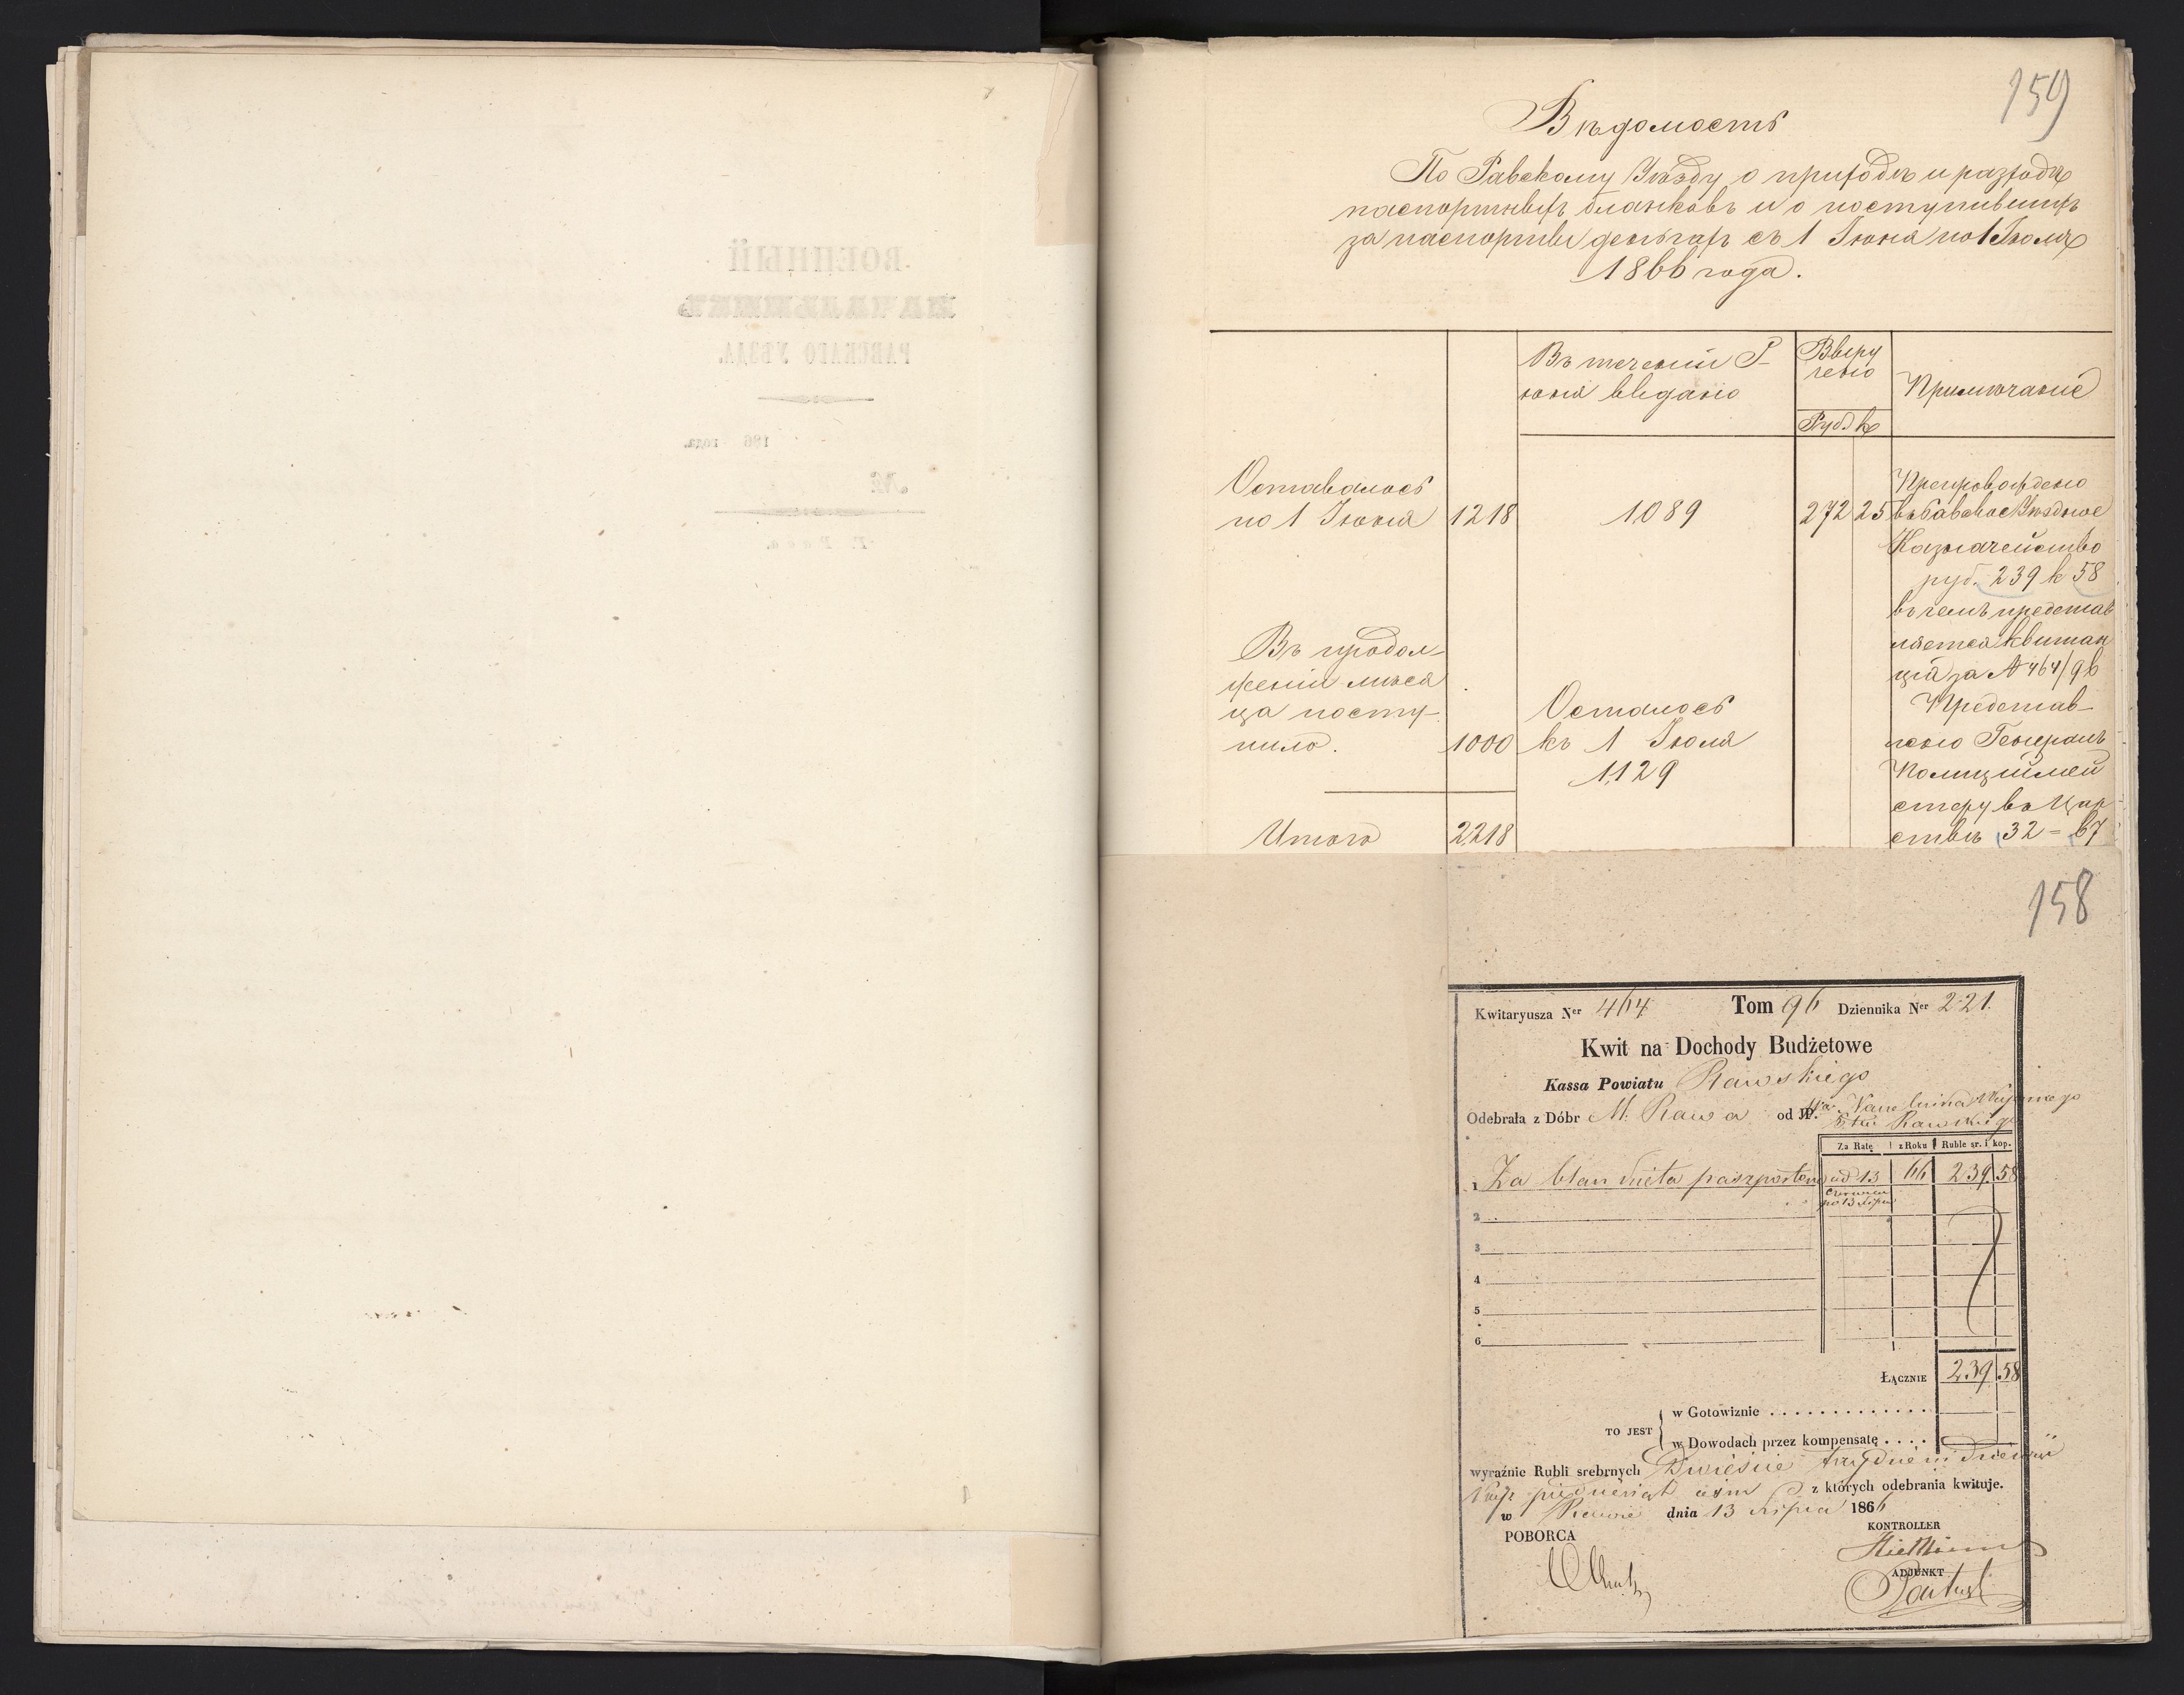 159
Вѣдомость
По Равскому Уѣзду о приходѣ и расходѣ
паспортныхъ бланковъ и о поступившихъ
за паспорты деньгахъ съ 1 Іюня по 1 Іюля
1866 года.
Въ теченіи І-
юня выдано
Выру
чено
Руб. к
Примѣчаніе
Оставалось
по 1 Іюня 1218 1089 272 25
Препровождено
въ Равское Уѣздное
Казначейство
руб. 239 к 58
въ чемъ представ
ляется квитан
ція за № 464/96
Представ-
лено Генералъ
Полиціймей
стеру въ Цар-
ствѣ 32 = 67
Въ продол-
женіи мѣся
ца посту-
пило. 1000
Осталось
къ 1 Іюля
1129
Итого 2218
158
Kwitaryusza Ner 464 Tom 96 Dziennika Ner 221.
Kwit na Dochody Budżetowe
Kassa Powiatu Rawskiego
Odebrała z Dóbr M. Rawa od JP. Naczelnika Wojennego
Ptu Rawskiego
Za Ratę z Roku Ruble sr. kop.
1 Za blankieta paszportowe od 13 66 239 58
czerwca
po 13 Lipca
2
3
4
5
6
Łącznie 239 58
TO JEST
w Gotowiznie
w Dowodach przez kompensatę
wyraźnie Rubli srebrnych Dwieście trzydzieści dziewięć
Kop pięćdziesiąt ośm z których odebrania kwituje.
w Rawie dnia 13 Lipca 1866
POBORCA
KONTROLLER
ADJUNKT
ВОЕННЫЙ
НАЧАЛЬНИКЪ
РАВСКАГО УѢЗДА.
186 года.
№
Г. Рава.